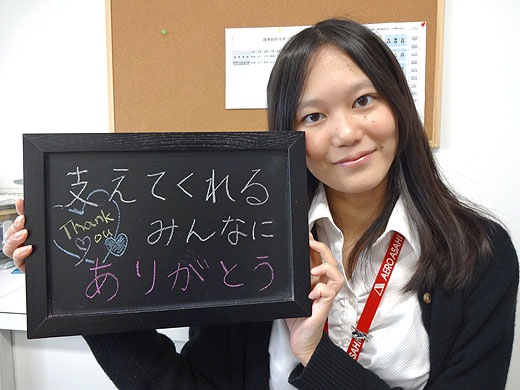 支えてくれる
Thank
you
みんなに
ありがとう
AERO ASAHI